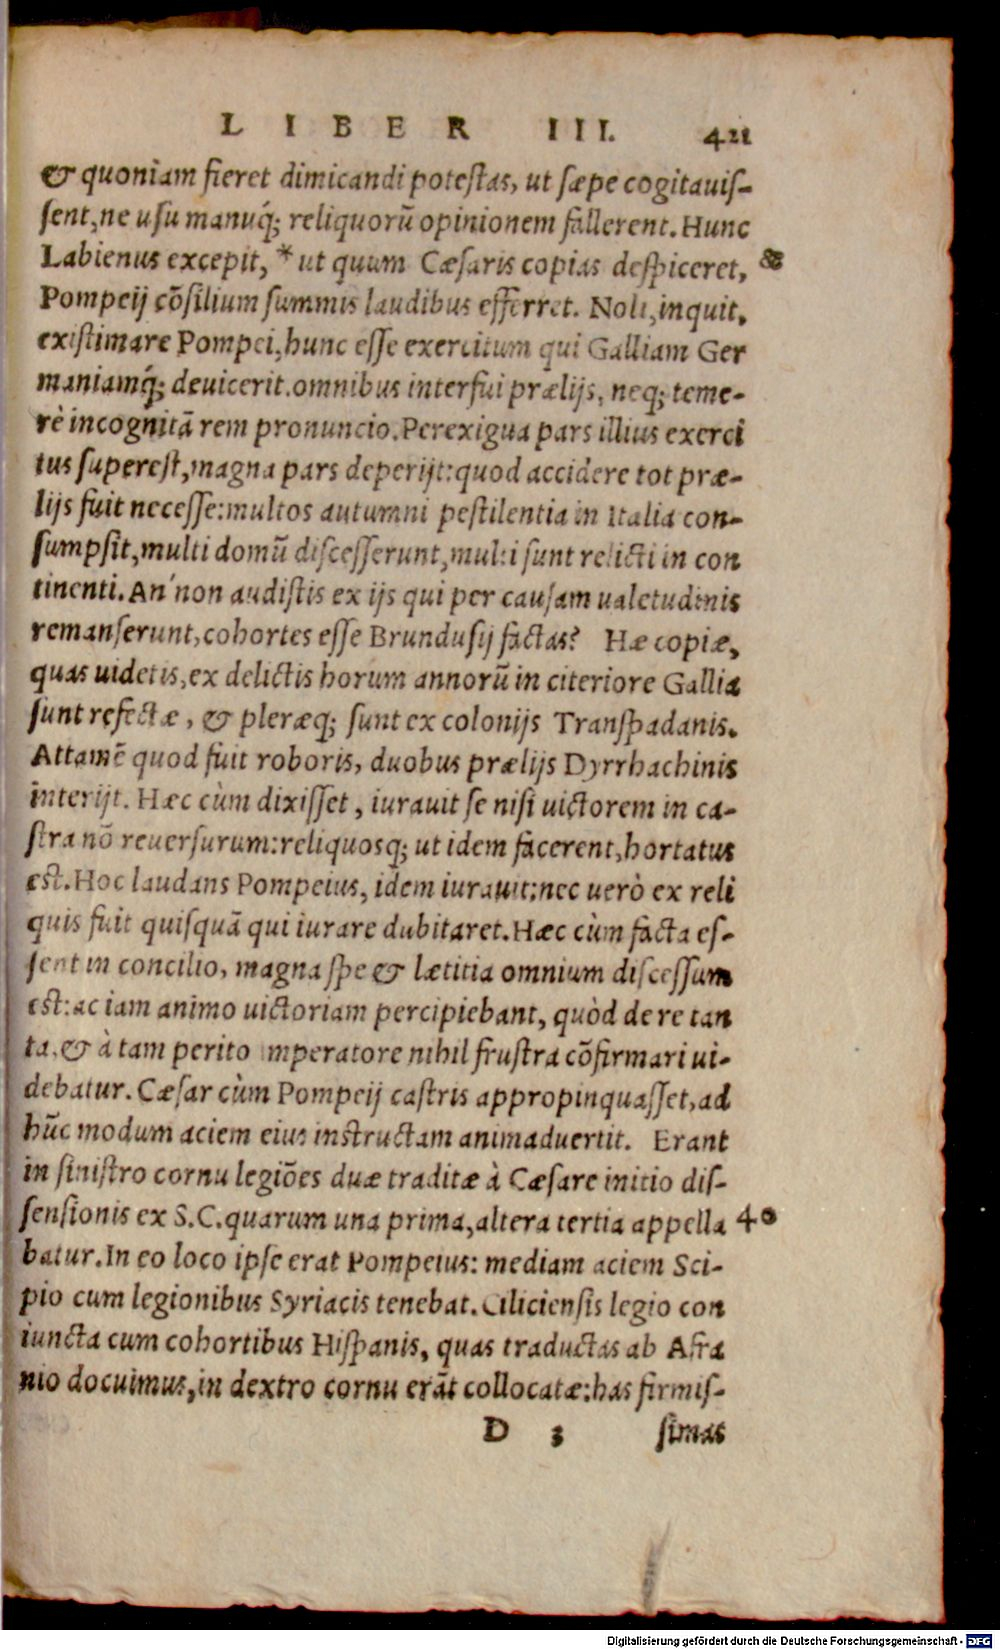 LIBER III. 421
& quoniam fieret dimicandi potestas, ut sæpe cogitauiſ-
ſent, ne uſu manuq́; reliquorũ opinionem fallerent. Hunc
Labienus excepit, * ut quum Cæſaris copias deſpiceret, &
Pompeij cõſilium ſummis laudibus efferret. Noli, inquit,
existimare Pompei, hunc eſſe exercitum qui Galliam Ger
maniamq́; deuicerit. omnibus interfui prælijs, neq; teme-
rè incognitã rem pronuncio. Perexigua pars illius exerci
tus ſuperest, magna pars deperijt: quod accidere tot præ-
lijs fuit neceſſe: multos autumni pestilentia in Italia con-
ſumpſit, multi domũ diſceſſerunt, multi ſunt relicti in con
tinenti. An' non audistis ex ijs qui per cauſam ualetudinis
remanſerunt, cohortes eſſe Brunduſij factas? Hæ copiæ,
quas uidetis, ex delictis horum annorũ in citeriore Gallia
ſunt refectæ, & pleræq; ſunt ex colonijs Tranſpadanis.
Attamẽ quod fuit roboris, duobus prælijs Dyrrhachinis
interijt. Hæc cùm dixiſſet, iurauit ſe niſi uictorem in ca-
ſtra nõ reuerſurum: reliquosq; ut idem facerent, hortatus
est. Hoc laudans Pompeius, idem iurauit: nec uerò ex reli
quis fuit quiſquã qui iurare dubitaret. Hæc cùm facta eſ-
ſent in concilio, magna ſpe & lætitia omnium diſceſſum
est: ac iam animo uictoriam percipiebant, quòd de re tan
ta, & à tam perito imperatore nihil fruſtra cõfirmari ui-
debatur. Cæſar cùm Pompeij caſtris appropinquaſſet, ad
hũc modum aciem eius instructam animaduertit. Erant
in ſiniſtro cornu legiões duæ traditæ à Cæſare initio diſ-
ſenſionis ex S.C. quarum una prima, altera tertia appella 40
batur. In eo loco ipſe erat Pompeius: mediam aciem Sci-
pio cum legionibus Syriacis tenebat. Cilicienſis legio con
iuncta cum cohortibus Hiſpanis, quas traductas ab Afra
nio docuimus, in dextro cornu erãt collocatæ: has firmiſ-
D 3 ſimas
Digitalisierung gefördert durch die Deutsche Forschungsgemeinschaft - DFG